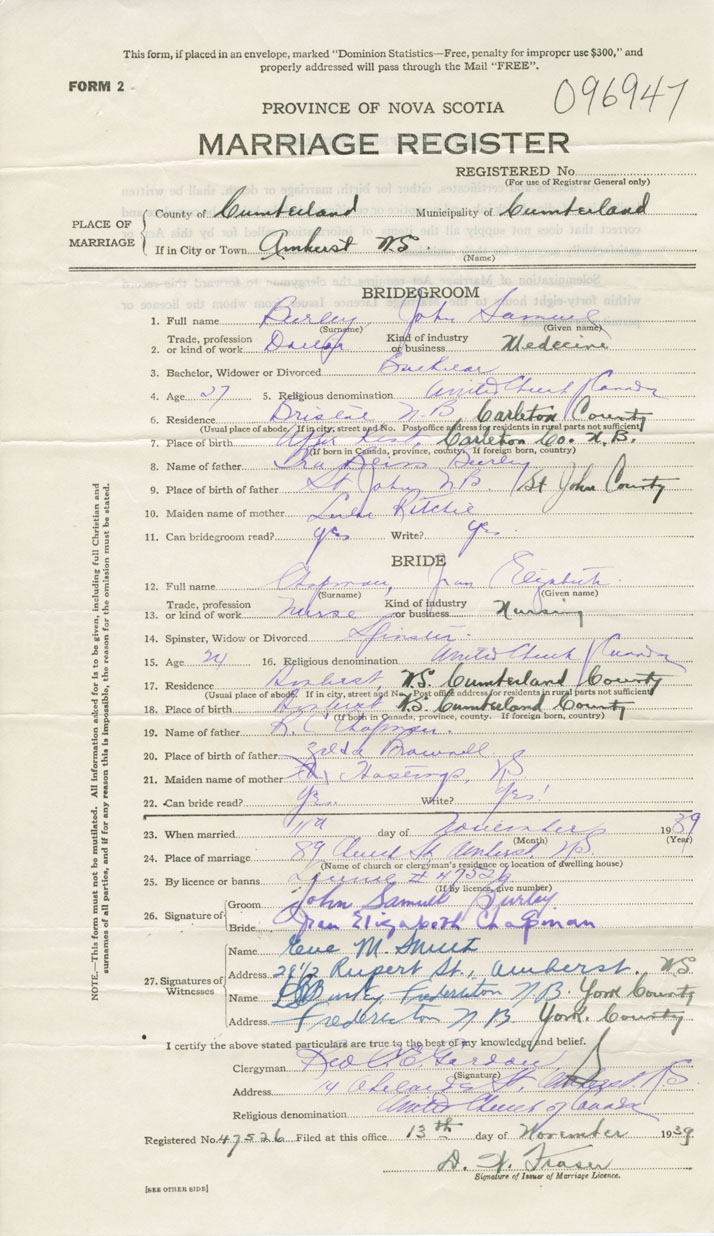 This form, if placed in an envelope, marked "Dominion Statistics—Free, penalty for improper use $300," and
properly addressed will pass through the Mail "FREE".
FORM 2
096947
PROVINCE OF NOVA SCOTIA
MARRIAGE REGISTER
REGISTERED No.
(For use of Registrar General only)
PLACE OF MARRIAGE
County of Cumberland Municipality of Cumberland
If in City or Town Amherst N.S.
(Name)
BRIDEGROOM
1. Full name Burley, John Samuel
(Surname) (Given name)
Trade, profession Kind of industry
2. or kind of work or business Medecine
3. Bachelor, Widower or Divorced Bachelor
4. Age 27 5. Religious denomination United Church / Canada
6. Residence N.B. Carleton County
(Usual place of abode. If in city, street and No. Post office address for residents in rural parts not sufficient)
7. Place of birth Upper Kent, Carleton Co. N.B.
(If born in Canada, province, county. If foreign born, country)
8. Name of father Ira Burley
9. Place of birth of father St John N.B. / St John County
10. Maiden name of mother Ritchie
11. Can bridegroom read? yes Write? yes.
BRIDE
12. Full name Chapman, Jean Elizabeth
(Surname) (Given name)
Trade, profession Kind of industry
13. or kind of work Nurse or business Nursing
14. Spinster, Widow or Divorced Spinster.
15. Age 24 16. Religious denomination United Church / Canada
17. Residence Amherst, N.S. Cumberland County
(Usual place of abode. If in city, street and No. Post office address for residents in rural parts not sufficient)
18. Place of birth Amherst N.S. Cumberland County
(If born in Canada, province, county. If foreign born, country)
19. Name of father Chapman.
20. Place of birth of father Zelda Brownell
21. Maiden name of mother Hastings, NS
22. Can bride read? Yes. Write? Yes!
23. When married 11th day of November 1939
(Month) (Year)
24. Place of marriage 89 Church St. Amherst N.S.
(Name of church or clergyman's residence or location of dwelling house)
25. By licence or banns License # 47526
(If by licence, give number)
26. Signature of
Groom John Samuel Burley
Bride Jean Elizabeth Chapman
27. Signatures of Witnesses
Name M. Smith
Address 28 1/2 Rupert St., Amherst. N.S.
Name Fredericton N.B. York County
Address Fredericton N B York. County
I certify the above stated particulars are true to the best of my knowledge and belief.
Clergyman Gordon
(Signature)
Address 14 St. Amherst N.S.
Religious denomination United Church of Canada
Registered No. 47526 Filed at this office 13th day of November 1939
D. W. Fraser
Signature of Issuer of Marriage Licence.
[SEE OTHER SIDE]
NOTE.—This form must not be mutilated. All information asked for is to be given, including full Christian and
surnames of all parties, and if for any reason this is impossible, the reason for the omission must be stated.